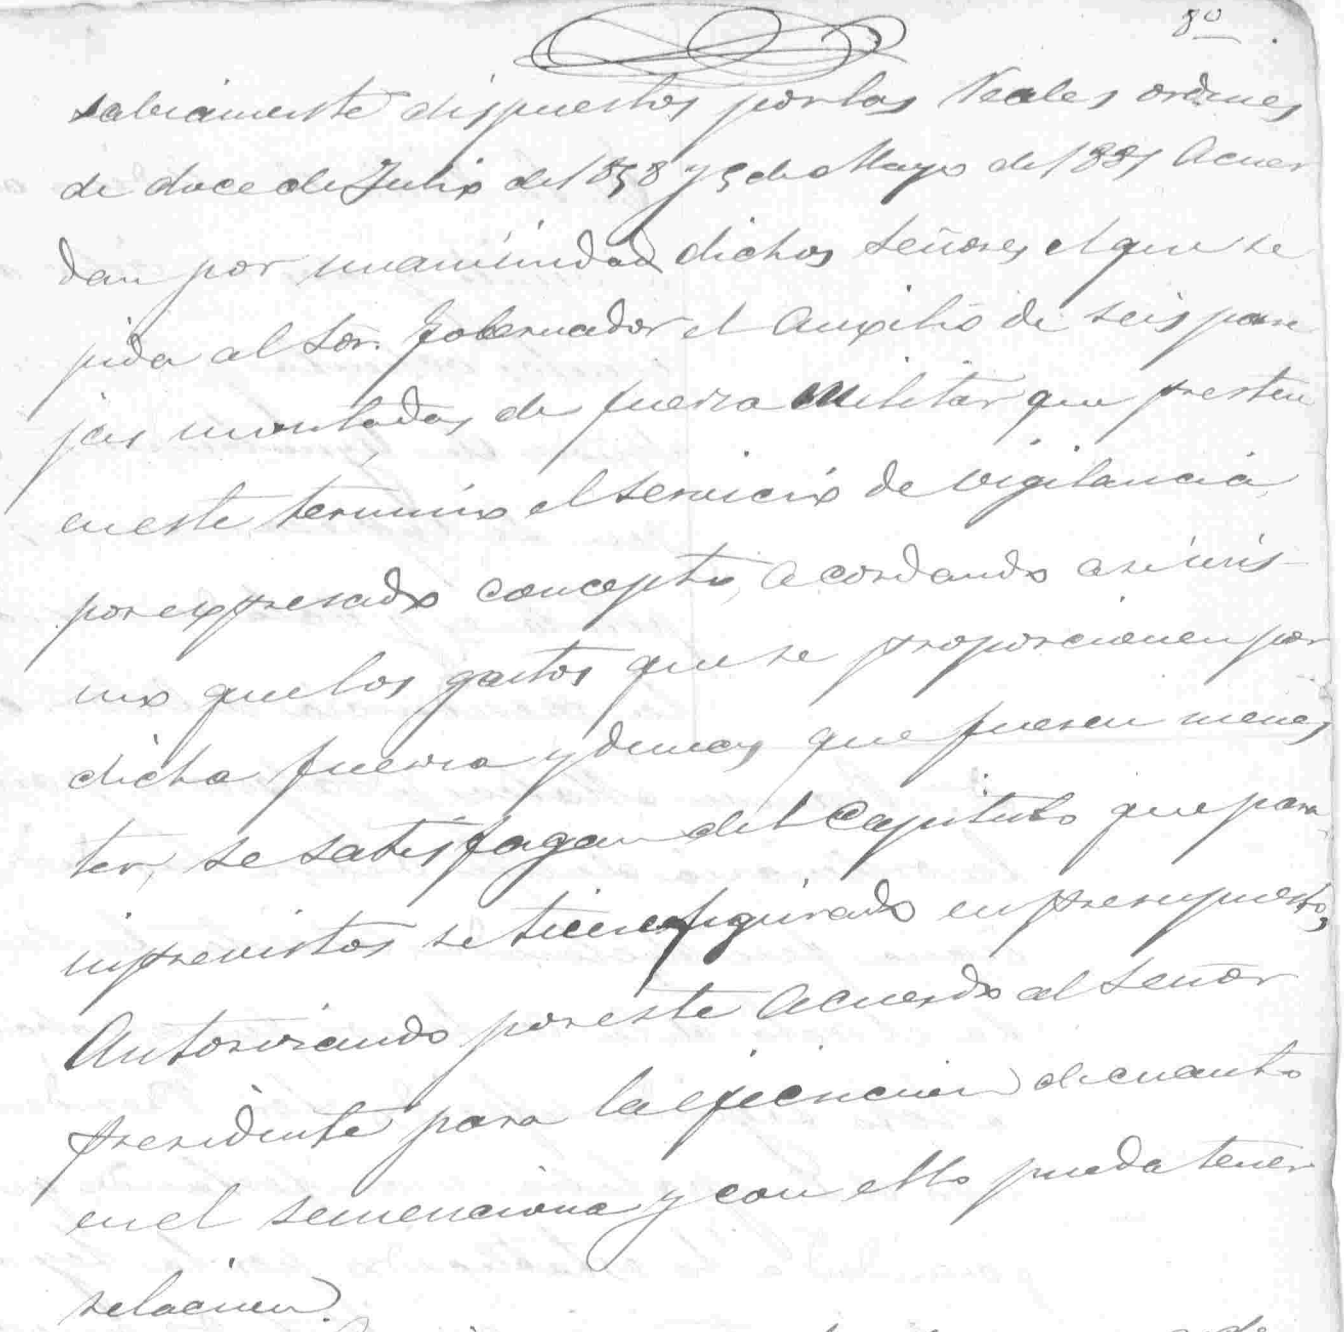 80
sabiamente dispuestos por las Reales ordenes
de doce de Julio del 1858 y 5 de Mayo del 1881 Acuer
dan por unanimidad dichos señores el que se
pida al Sor. Gobernador el Auxilio de seis pare
jas montadas de fuerza Militar que presten
en este termino el servicio de vigilancia
por expresado concepto, acordando asi mis-
mo que los gastos que se proporcionen por
dicha fuerza y demas que fueren menes
ter, se satisfagan del Capitulo que para
imprevistos se tiene figurado en presupuesto,
Autorizando por este Acuerdo al Señor
presidente para la ejecucion de cuanto
en el se menciona y con ello pueda tener
relacion.